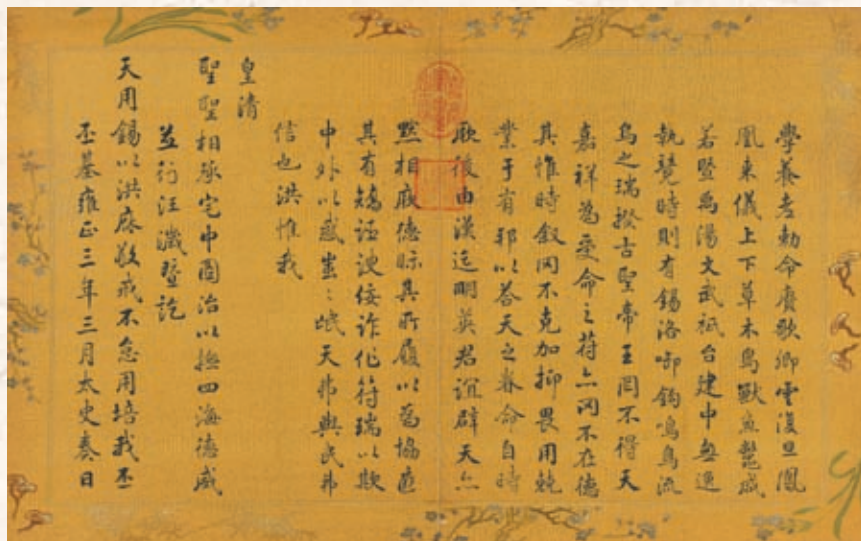 學養老勅命賡歌卿雲復旦鳳
凰来儀上下草木鳥獸魚鼈咸
若暨禹湯文武祗台建中無逸
執競時則有錫洛啣鈎鳴鳥流
烏之瑞揆古聖帝王罔不得天
嘉祥為受命之符亦罔不在德
其惟時叙罔不克加抑畏用兢
業于有邦以荅天之眷命自時
厥後由漢迄明英君誼辟天亦
默相厥德眎其所履以為協應
其有矯誣諛佞詐作符瑞以欺
中外以惑蚩〻氓天弗與民弗
信也洪惟我
皇清
聖聖相承宅中圖治以撫四海德威
並行汪濊暨訖
天用錫以洪庥敬戒不怠用培我丕
丕基雍正三年三月太史奏日